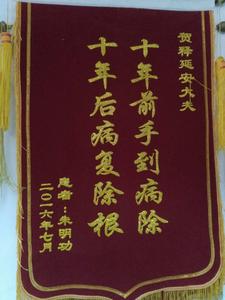 贺释延安大夫
十年前手到病除
十年后病复除根
患者：朱明功
二〇一六年七月